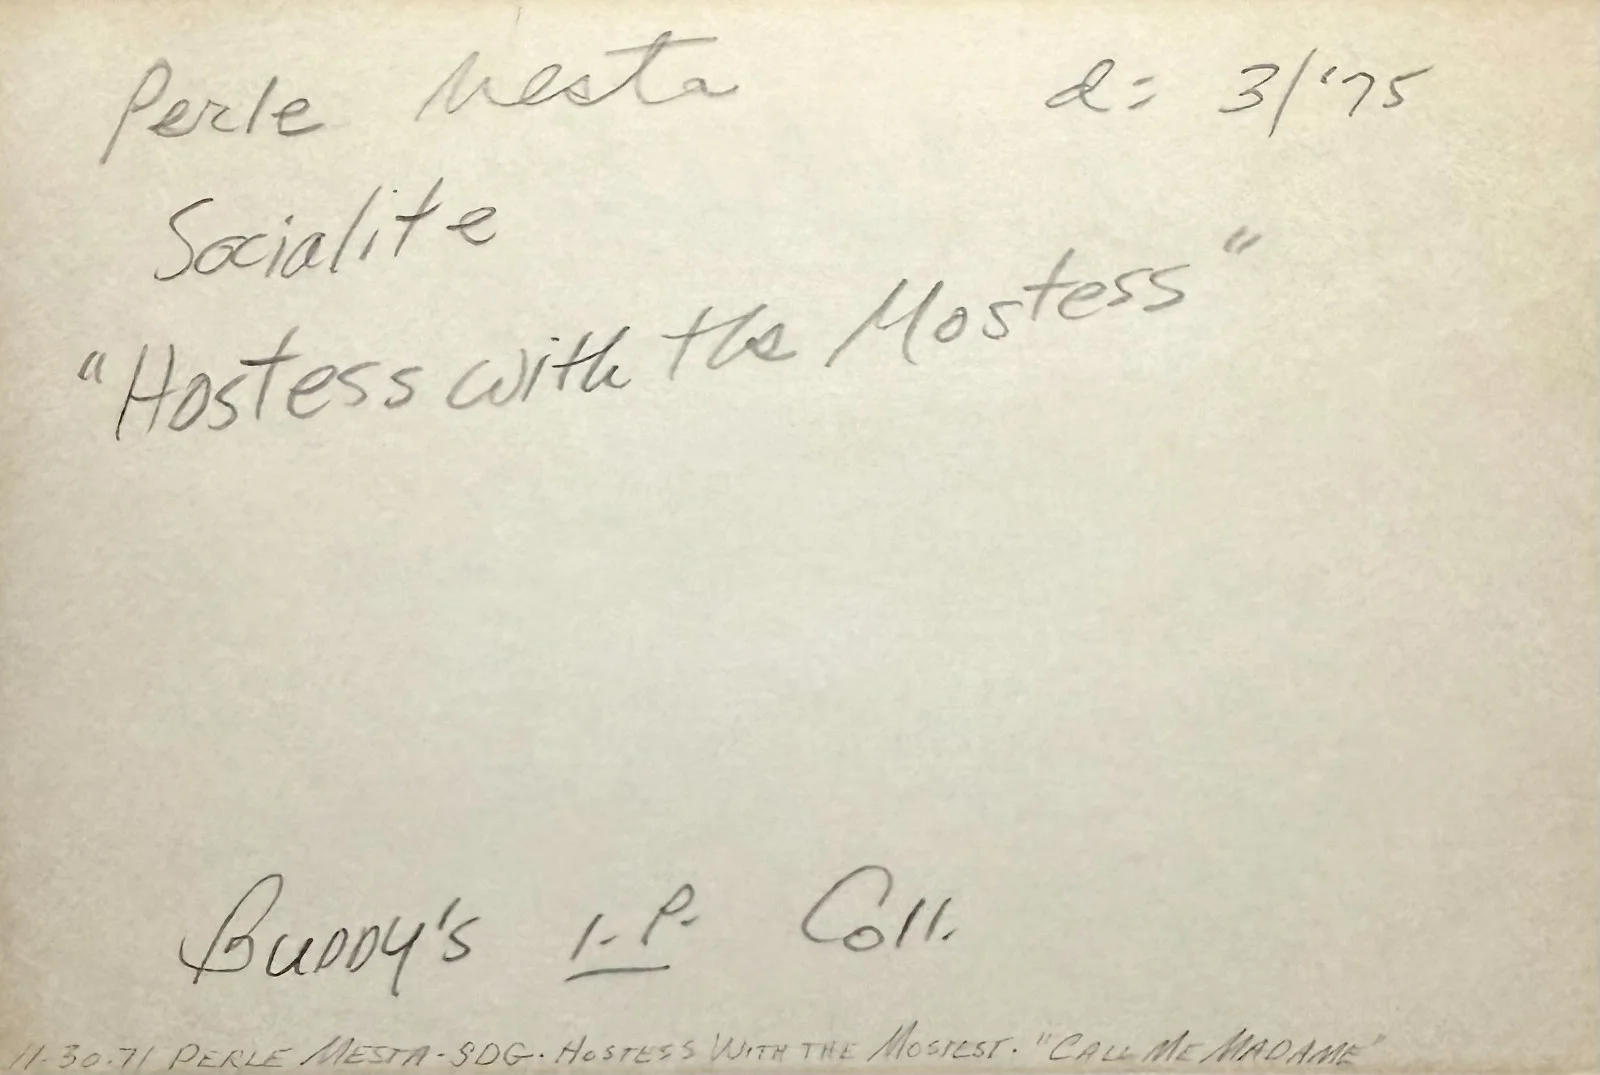 Perle Mesta d: 3/'75
Socialite
"Hostess with the Mostess"
Buddy's I.P. Coll.
11.30.71 PERLE MESTA-SDG. HOSTESS WITH THE MOSTEST. "CALL ME MADAME"